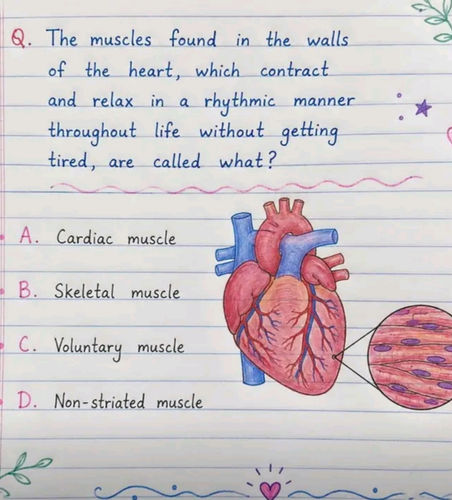 Q. The muscles found in the walls
of the heart, which contract
and relax in a rhythmic manner
throughout life without getting
tired, are called what?
A. Cardiac muscle
B. Skeletal muscle
C. Voluntary muscle
D. Non-striated muscle